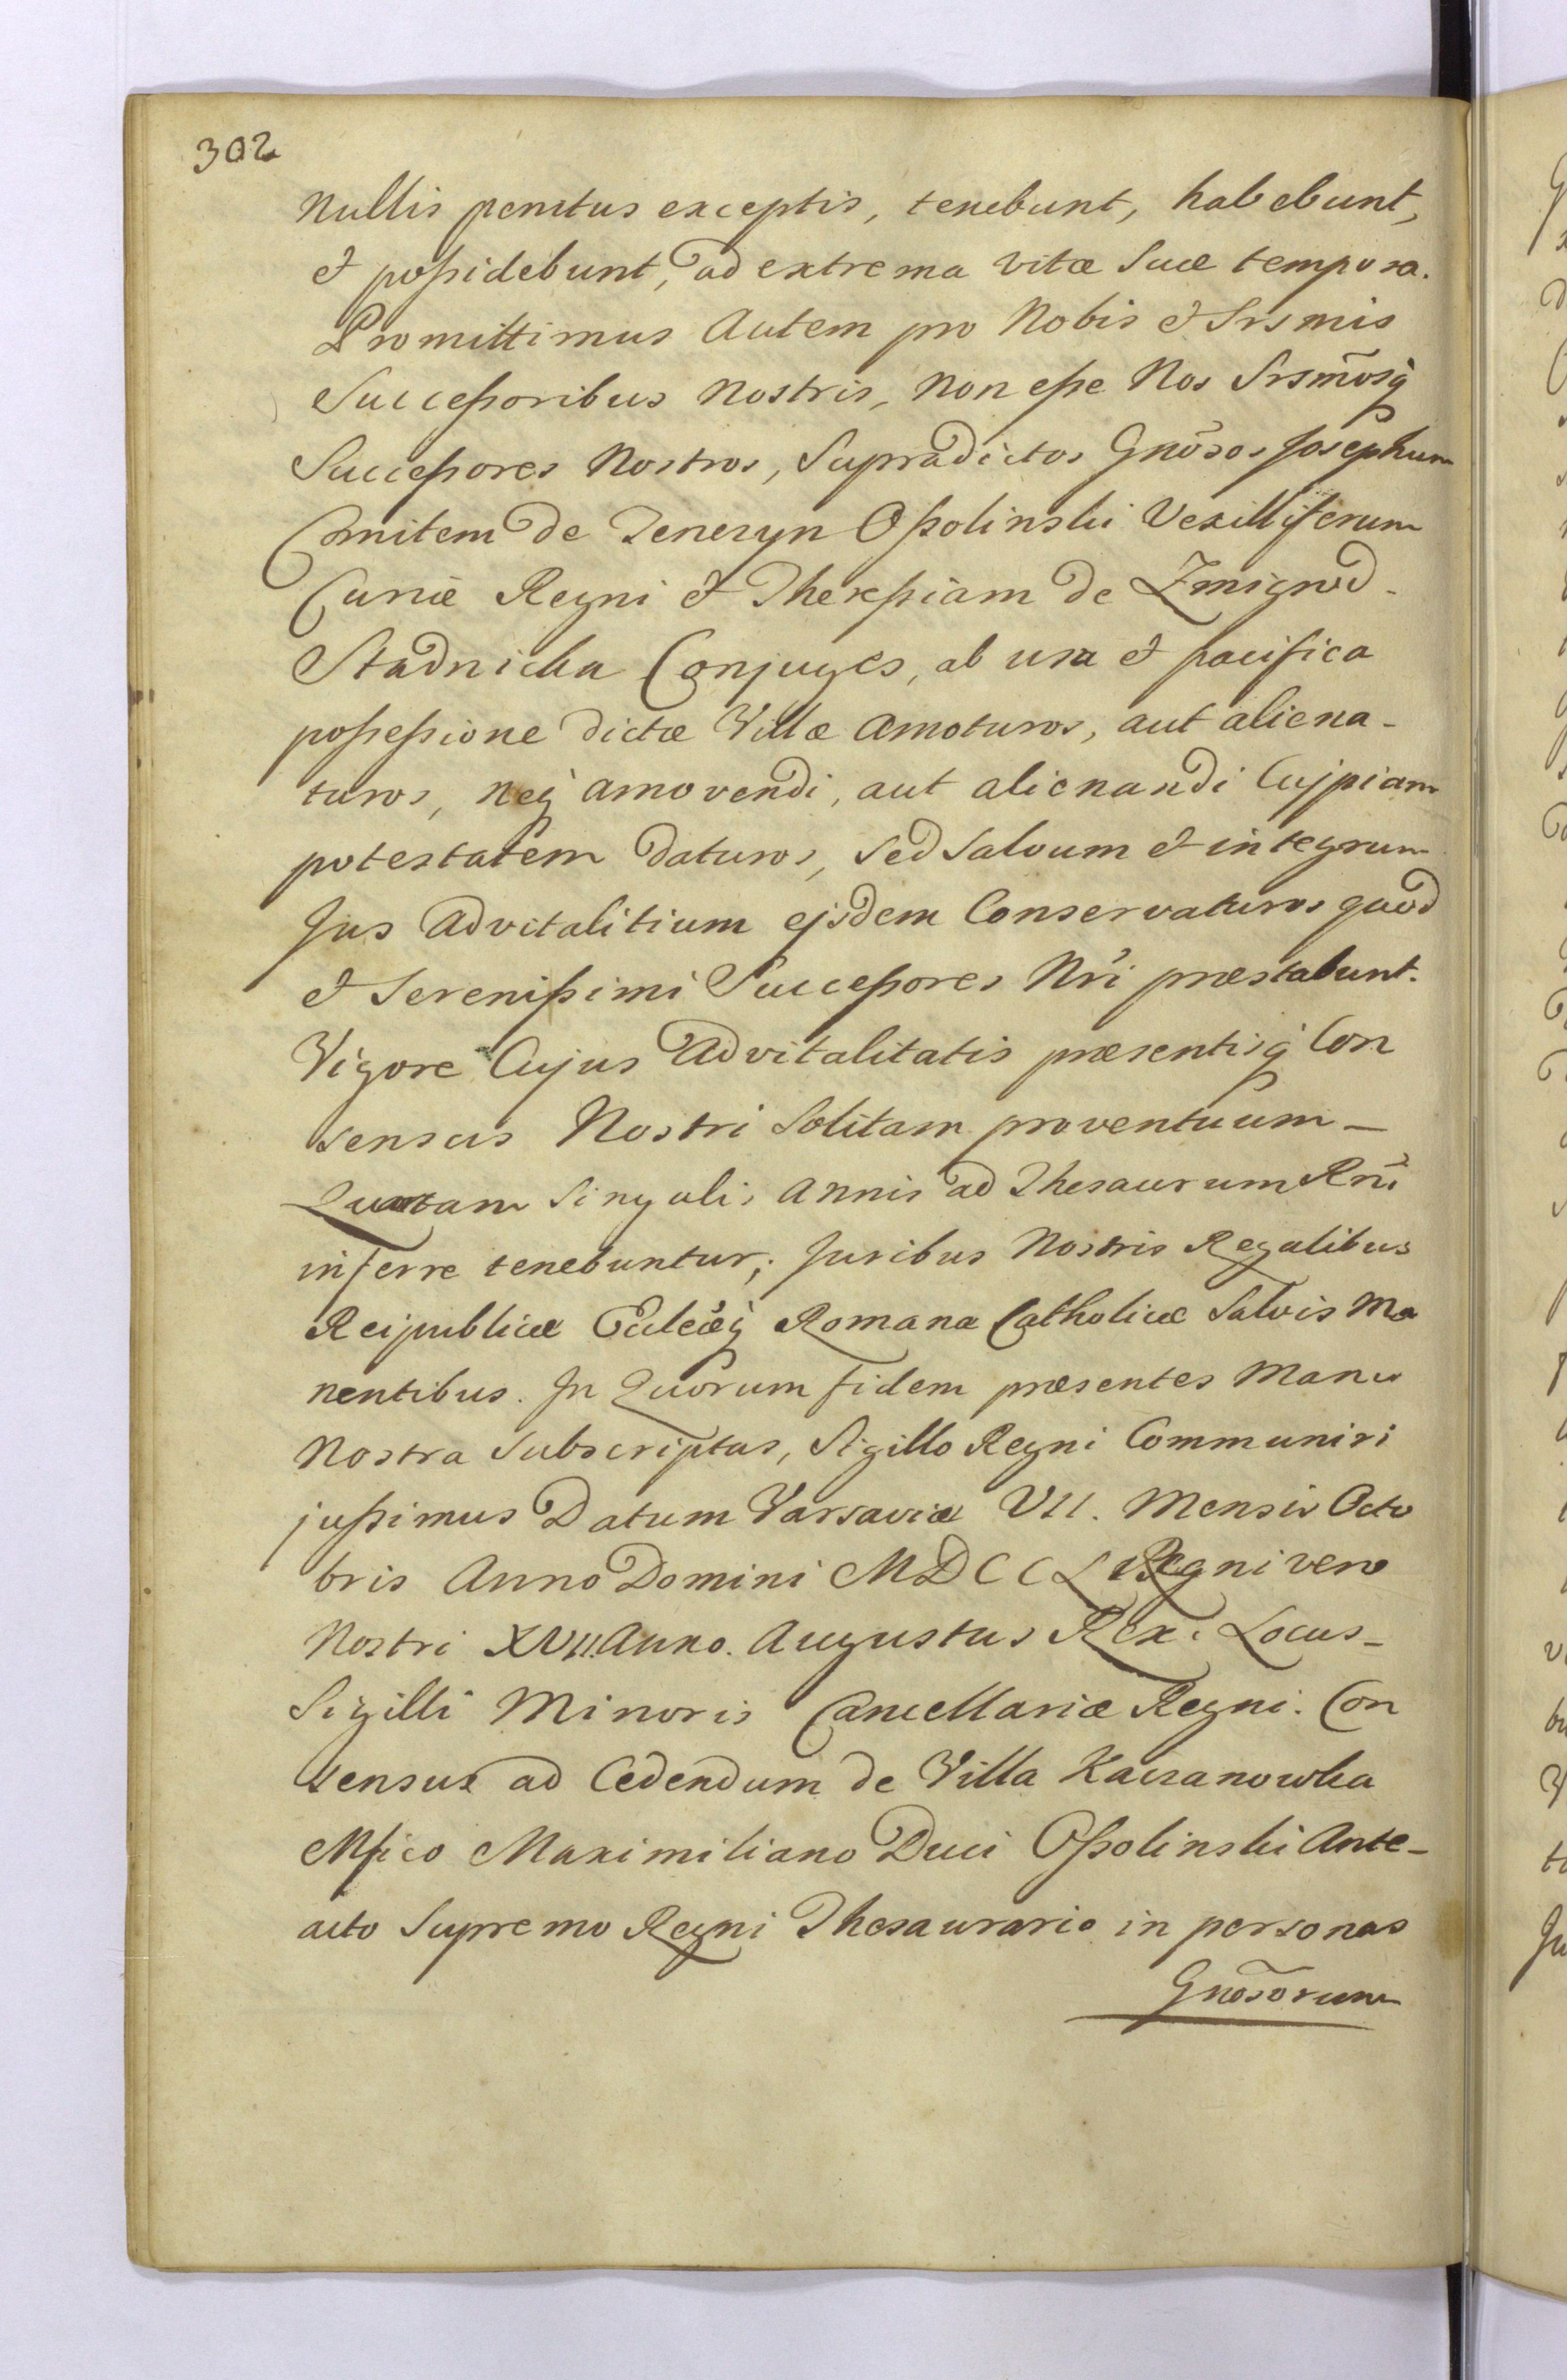 302
Nullis penitus exceptis, tenebunt, habebunt,
et poßidebunt, ad extrema vitæ Suæ tempora.
Promittimus Autem pro Nobis et Srsmis
Succeßoribus Nostris, Non eße Nos Srsm̃osq̃
Succeßores Nostros, Supradictos Gnõsos Josephum
Comitem de Tenczyn Oßolinski Vexilliferum
Curiæ Regni et Thereßiam de Zmigrod -
Stadnicka Conjuges, ab usu et pacifica
poßeßione dictæ Villæ Amoturos, aut aliena-
turos, neq̃ amovendi, aut alienandi Cujpiam
potestatem daturos, sed Salvum et integrum
Jus Advitalitium ejsdem Conservaturos quod
et Serenißimi Succeßores Nr̃i præstabunt.
Vigore Cujus Advitalitatis præsentisq̃ Con
sensus Nostri Solitam proventuum -
Quartam Singulis Annis ad Thesaurum Rñi
inferre tenebuntur; Juribus Nostris Regalibus
Reipublicæ Eccleæq̃ Romana Catholicæ Salvis Ma
nentibus. In Quorum fidem præsentes Manu
Nostra Subscriptas, Sigillo Regni Communiri
jußimus Datum Varsaviæ VII. Mensis Octo
bris Anno Domini MDCCL Regni vero
Nostri XVII. Anno. Augustus Rex. Locus -
Sigilli Minoris Cancellariæ Regni. Con
sensus ad Cedendum de Villa Kaczanowka
Mfico Maximiliano Duci Oßolinski Ante-
acto Supremo Regni Thesaurario in personas
Gnõsorum